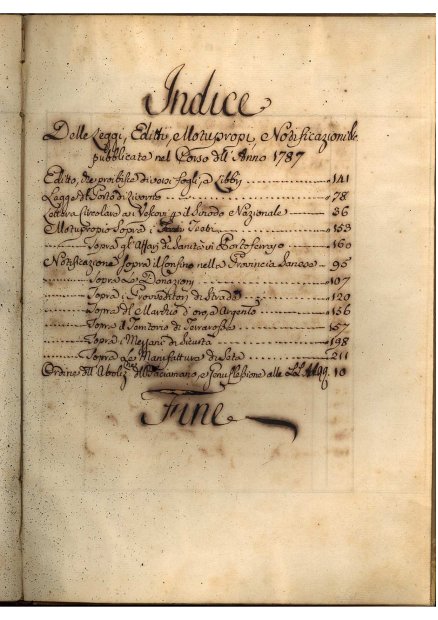 Indice
Delle Leggi, Editti, Motupropj, e Notificazioni &c.
pubblicate nel Corso dell'Anno 1787
Editto, che proibisce diversi fogli, e Libbri 141
Legge del Porto di Livorno 78
Lettera Circolare ai Vescovi p il Sinodo Nazionale 36
Motuproprio Sopra i Teatri 153
Sopra gl'Affari di Sanità in Portoferrajo 160
Notificazione Sopra il Confino nella Provincia Sanese 95
Sopra Le Donazioni 107
Sopra i Provveditori di Strade 120
Sopra il Marchio d'oro, e Argento 156
Sopra il Territorio di 157
Sopra i Mezzani di Sicurtà 198
Sopra Le Manifatture di Seta 211
Ordine dell'Aboliz: del Baciamano, e Genuflessione alle LL. 10
Fine